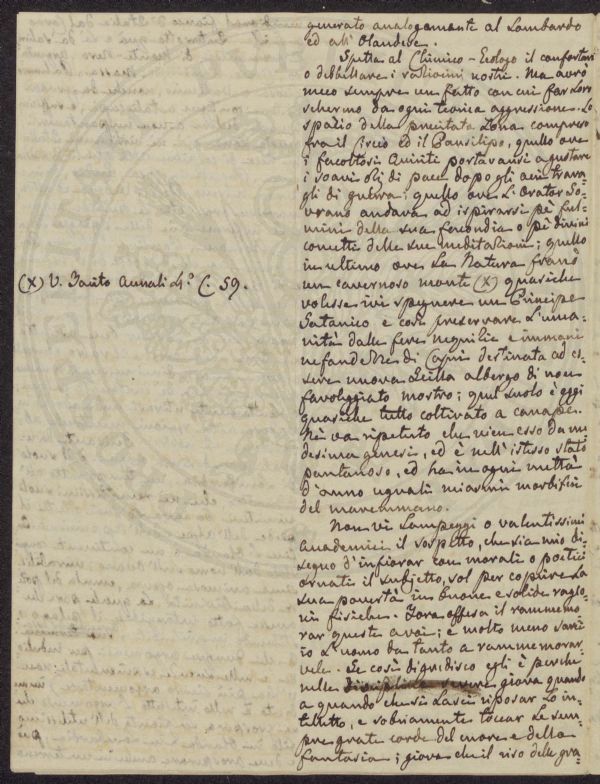 generato analogamente al Lombardo
ed all' Olandese.
Spetta al Chimico-Geologo il confortare
o debellare i raziocini nostri. Ma avrò
meco sempre un fatto con cui far loro
schermo da ogni teorica aggressione. Lo
spazio della precitata Zona compreso
fra il Circeo ed il Pausilipo, quello ove
i facoltosi Quiriti portavansi a gustare
i soavi ozj di pace dopo gli aspri trava-
gli di guerra; quello ove l'Orator So-
vrano andava ad ispirarsi pè ful-
mini della sua facondia o pè divini
concetti delle sue meditazioni; quello
in ultimo ove La Natura franò
un cavernoso monte (X) quasiche
volesse ivi spegnere un Principe
Satanico e così preservare l'uma-
nità dalle fere nequizie e immani
nefandezze di Capri destinata ad es-
sere nuova Scilla albergo di non
favoleggiato mostro; quel suolo è oggi
quasiche tutto coltivato a canape.
Nè va ripetuto che vien esso da me-
desima genesi, ed è nell' istesso stato
pantanoso, ed ha in ogni mettà
d'anno uguali miasmi morbifici
del maremmano.
(X) V. Tacito Annali L. 4.° C. 59.
Non vi lampeggi o valentissimi
Academici il sospetto, che sia mio di-
segno d'infiorar con morali o poetici
ornati il subjetto, sol per coprire la
sua povertà in buone e solide ragio-
ni fisiche. Fora offesa il rammemo-
rar queste a voi; e molto meno sarei
io l'uomo da tanto a rammemorar-
vele. Se così digredisco egli è perchè
nelle severe giova quando
a quando che si lasci riposar lo in-
telletto, e sobriamente toccar le sem-
pre grate corde del cuore e della
fantasia; giova che il riso delle gra-